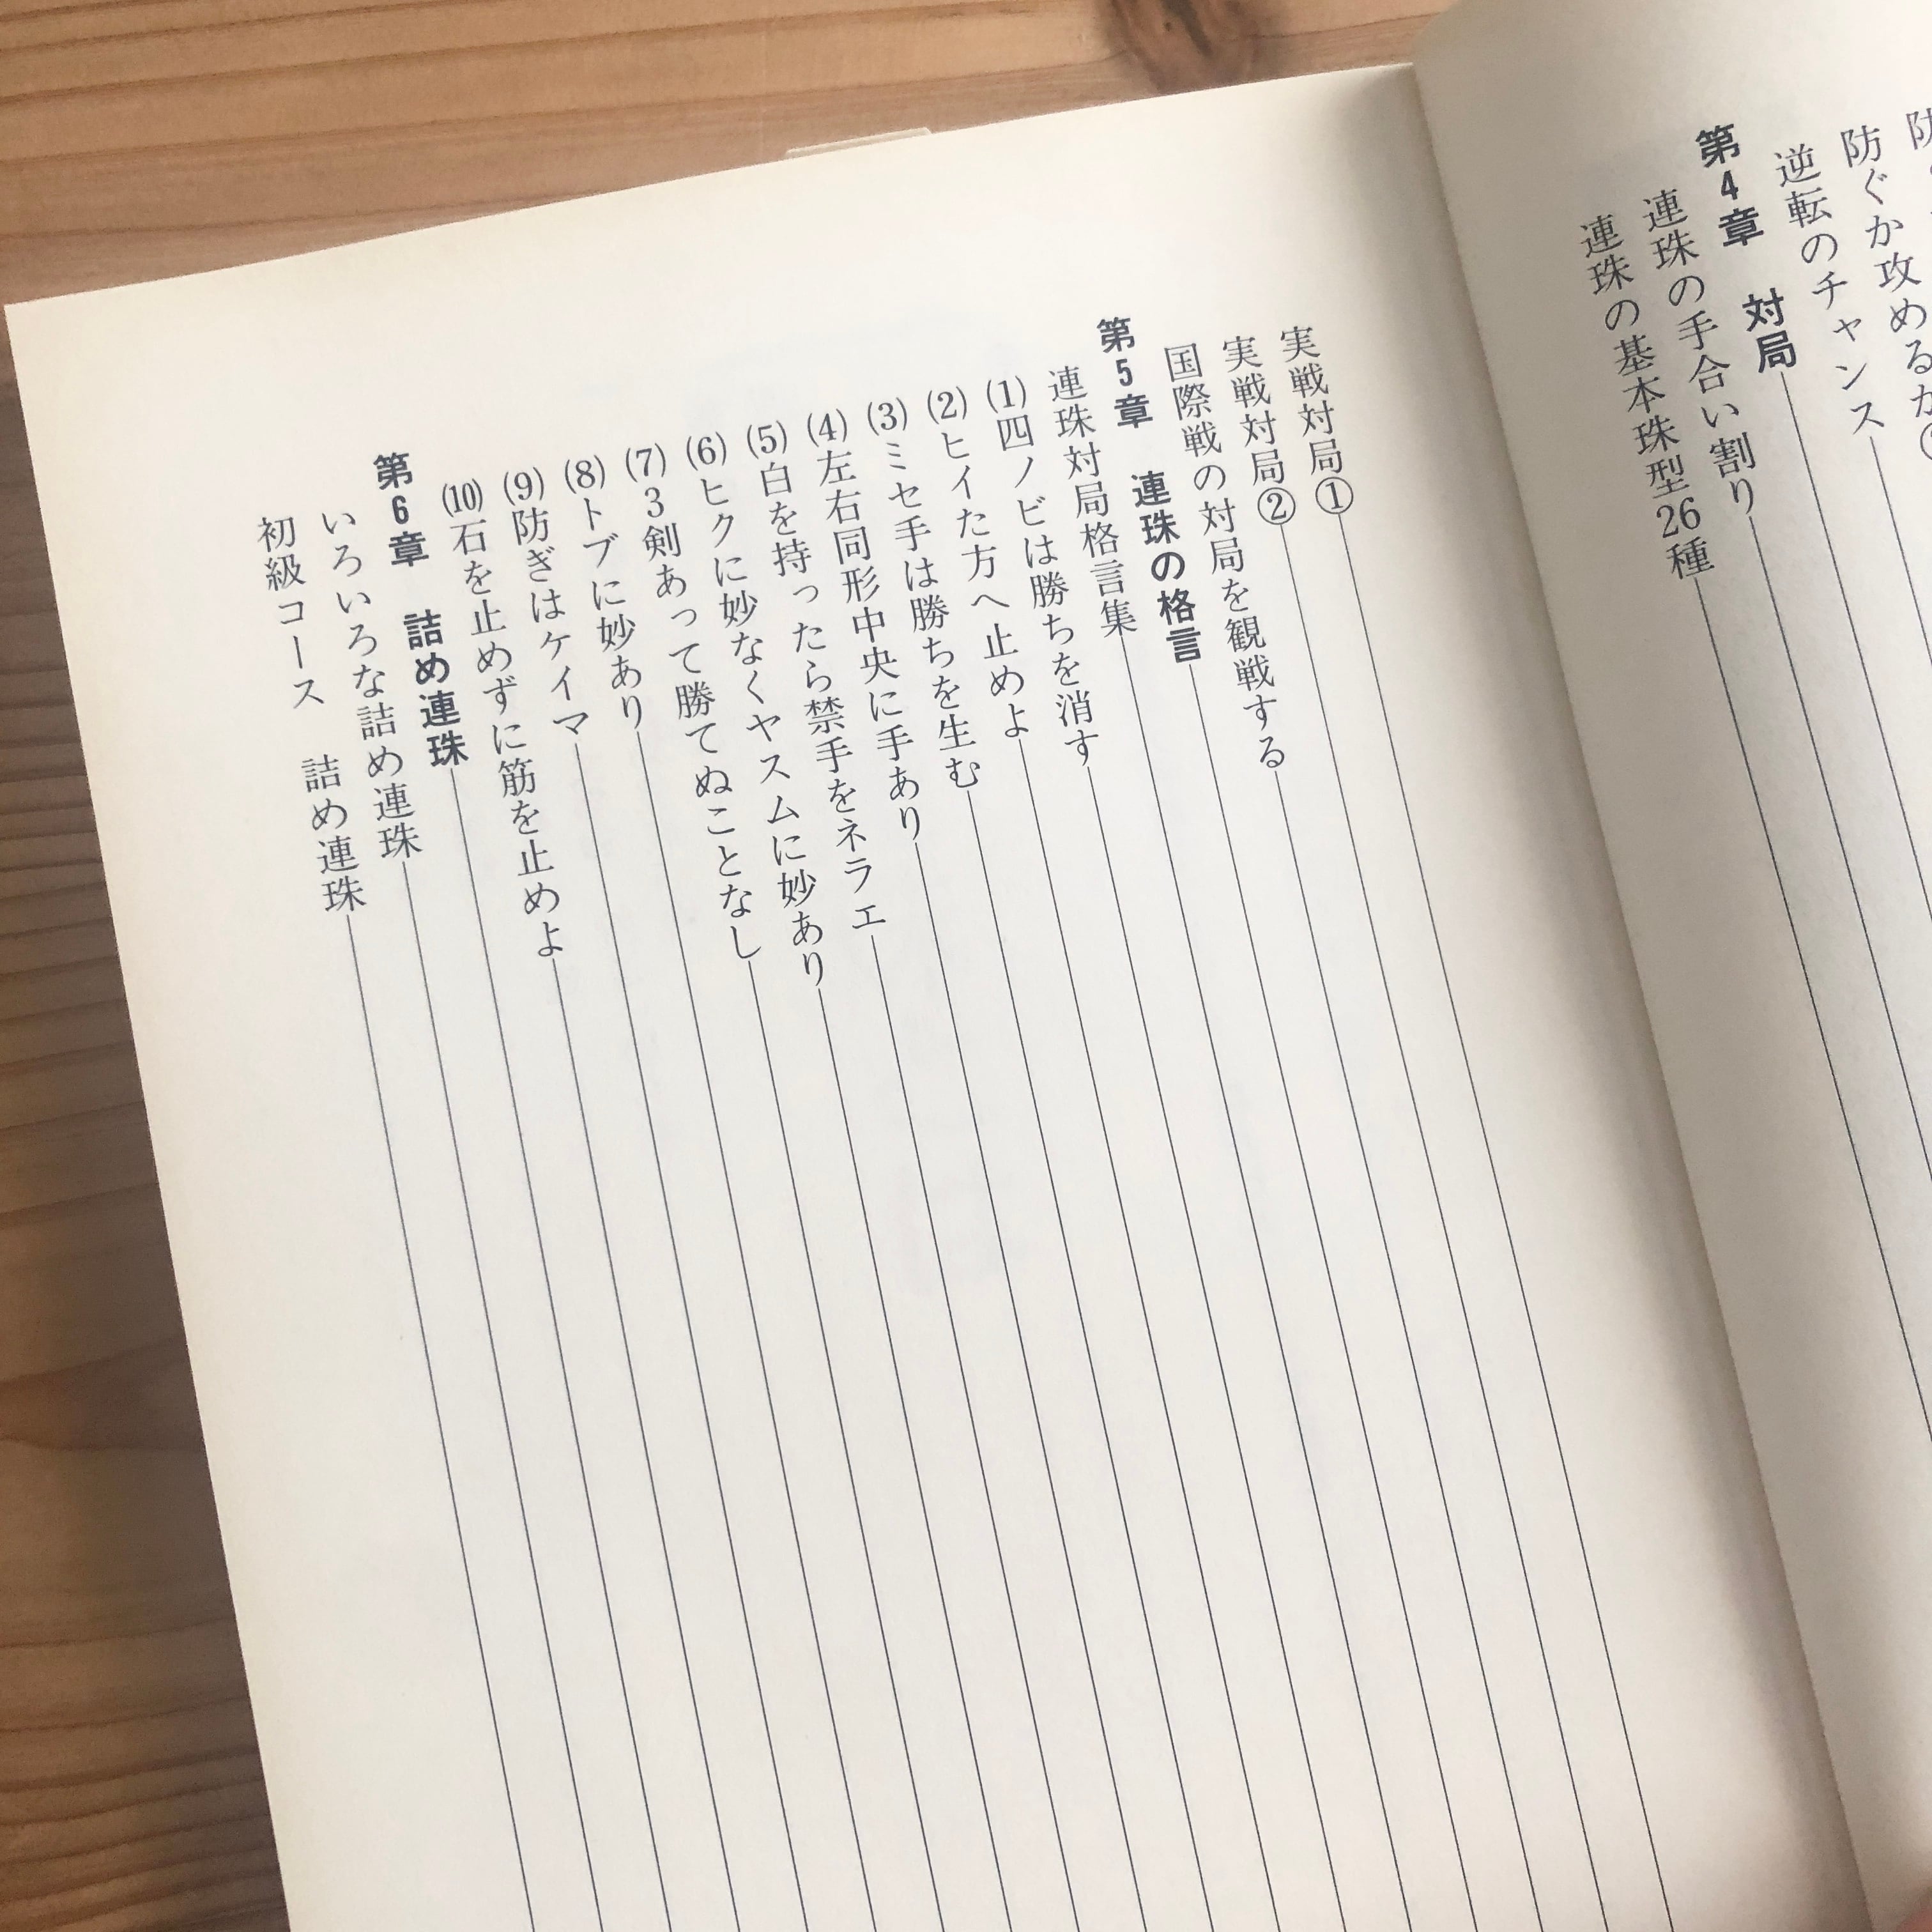 防ぐか攻めるか
逆転のチャンス
第4章 対局
連珠の手合い割り
連珠の基本珠型26種
実戦対局①
実戦対局②
国際戦の対局を観戦する
第5章 連珠の格言
連珠対局格言集
(1)四ノビは勝ちを消す
(2)ヒイた方へ止めよ
(3)ミセ手は勝ちを生む
(4)左右同形中央に手あり
(5)白を持ったら禁手をネラエ
(6)ヒクに妙なくヤスムに妙あり
(7)3剣あって勝てぬことなし
(8)トブに妙あり
(9)防ぎはケイマ
(10)石を止めずに筋を止めよ
第6章 詰め連珠
いろいろな詰め連珠
初級コース 詰め連珠